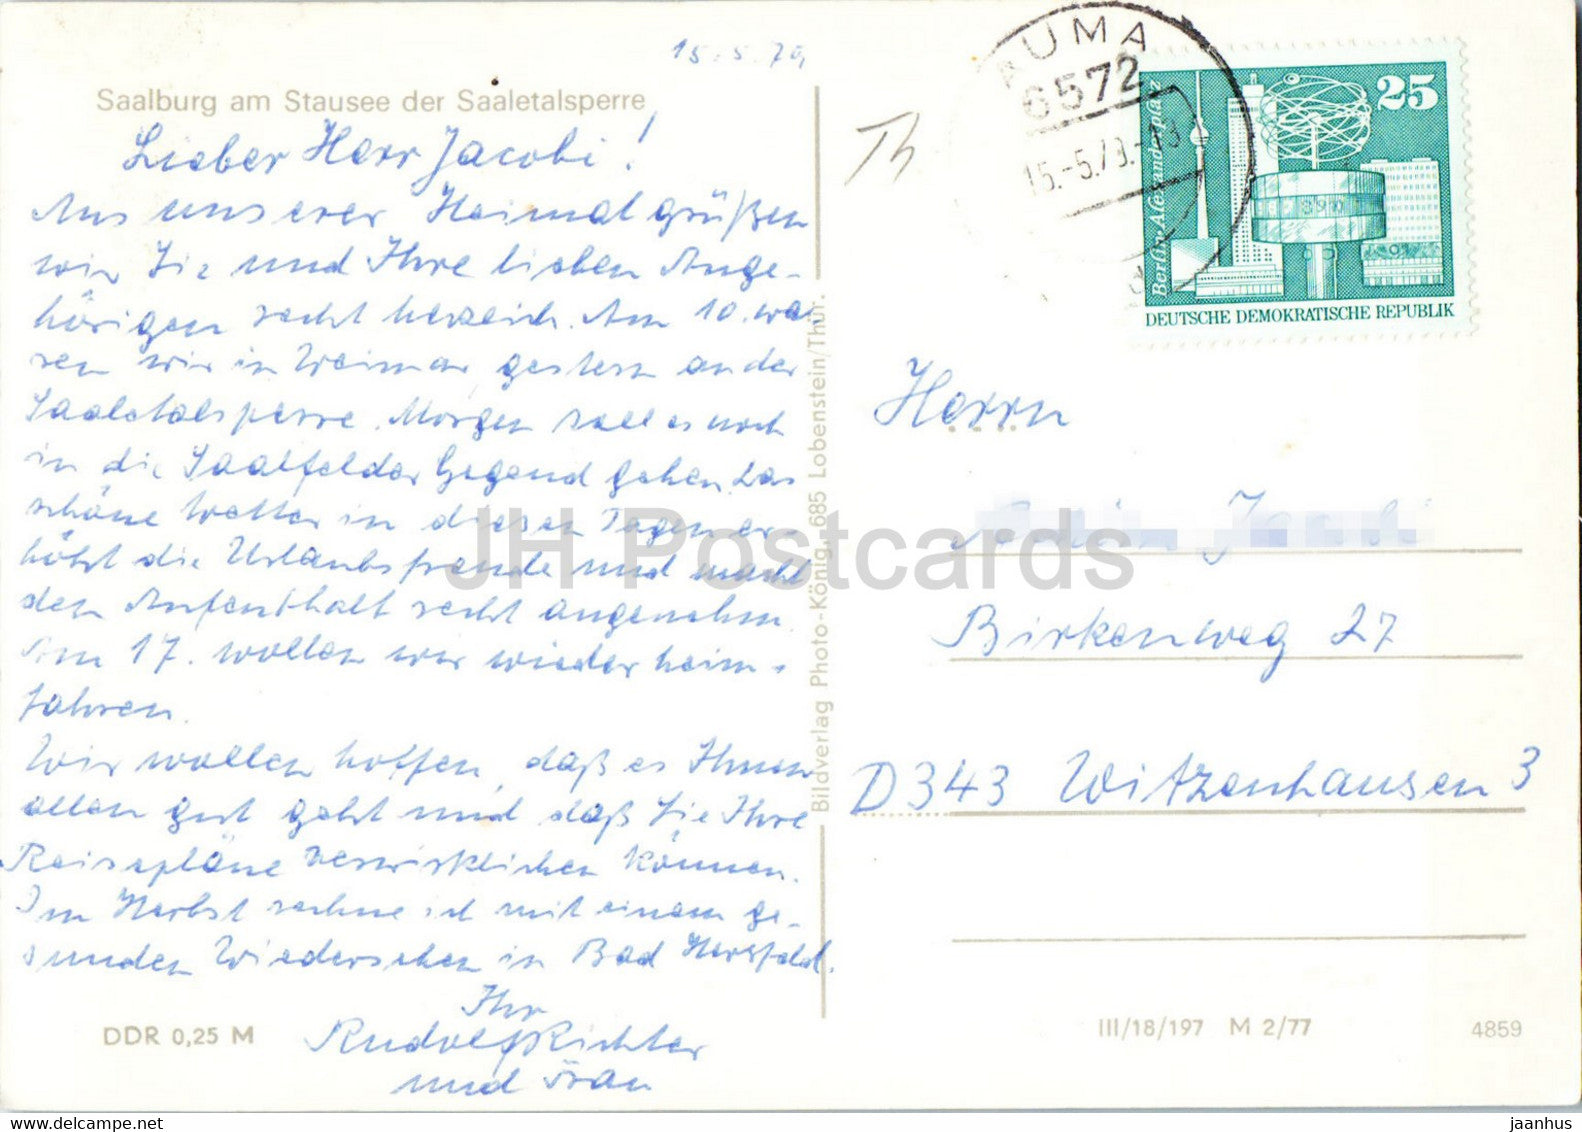 15.5.79
Saalburg am Stausee der Saaletalsperre
Lieber Herr Jacobi!
Aus unserer Heimat grüßen
wir Sie und Ihre lieben Ange-
hörigen recht herzlich. Am 10. wa-
ren wir in Weimar, gestern an der
Saaletalsperre. Morgen soll es noch
in die Saalfelder Gegend gehen. Das
schöne Wetter in diesen Tagen er-
höht die Urlaubsfreude und macht
den Aufenthalt recht angenehm.
Am 17. wollen wir wieder heim-
fahren.
Wir wollen hoffen, daß es Ihnen
allen gut geht und daß Sie Ihre
Reisepläne verwirklichen können.
Im Herbst rechne ich mit einem ge-
sunden Wiedersehen in Bad Hersfeld.
Ihr
Rudolf Richter
und Frau
DDR 0,25 M
Bildverlag Photo-König, 685 Lobenstein/Thür.
Th
AUMA
6572
15.-5.79.-13
25
Berlin-Alexanderplatz
DEUTSCHE DEMOKRATISCHE REPUBLIK
Herrn
Birkenweg 27
D343 Witzenhausen 3
III/18/197 M 2/77
4859
JH Postcards
jaanhus